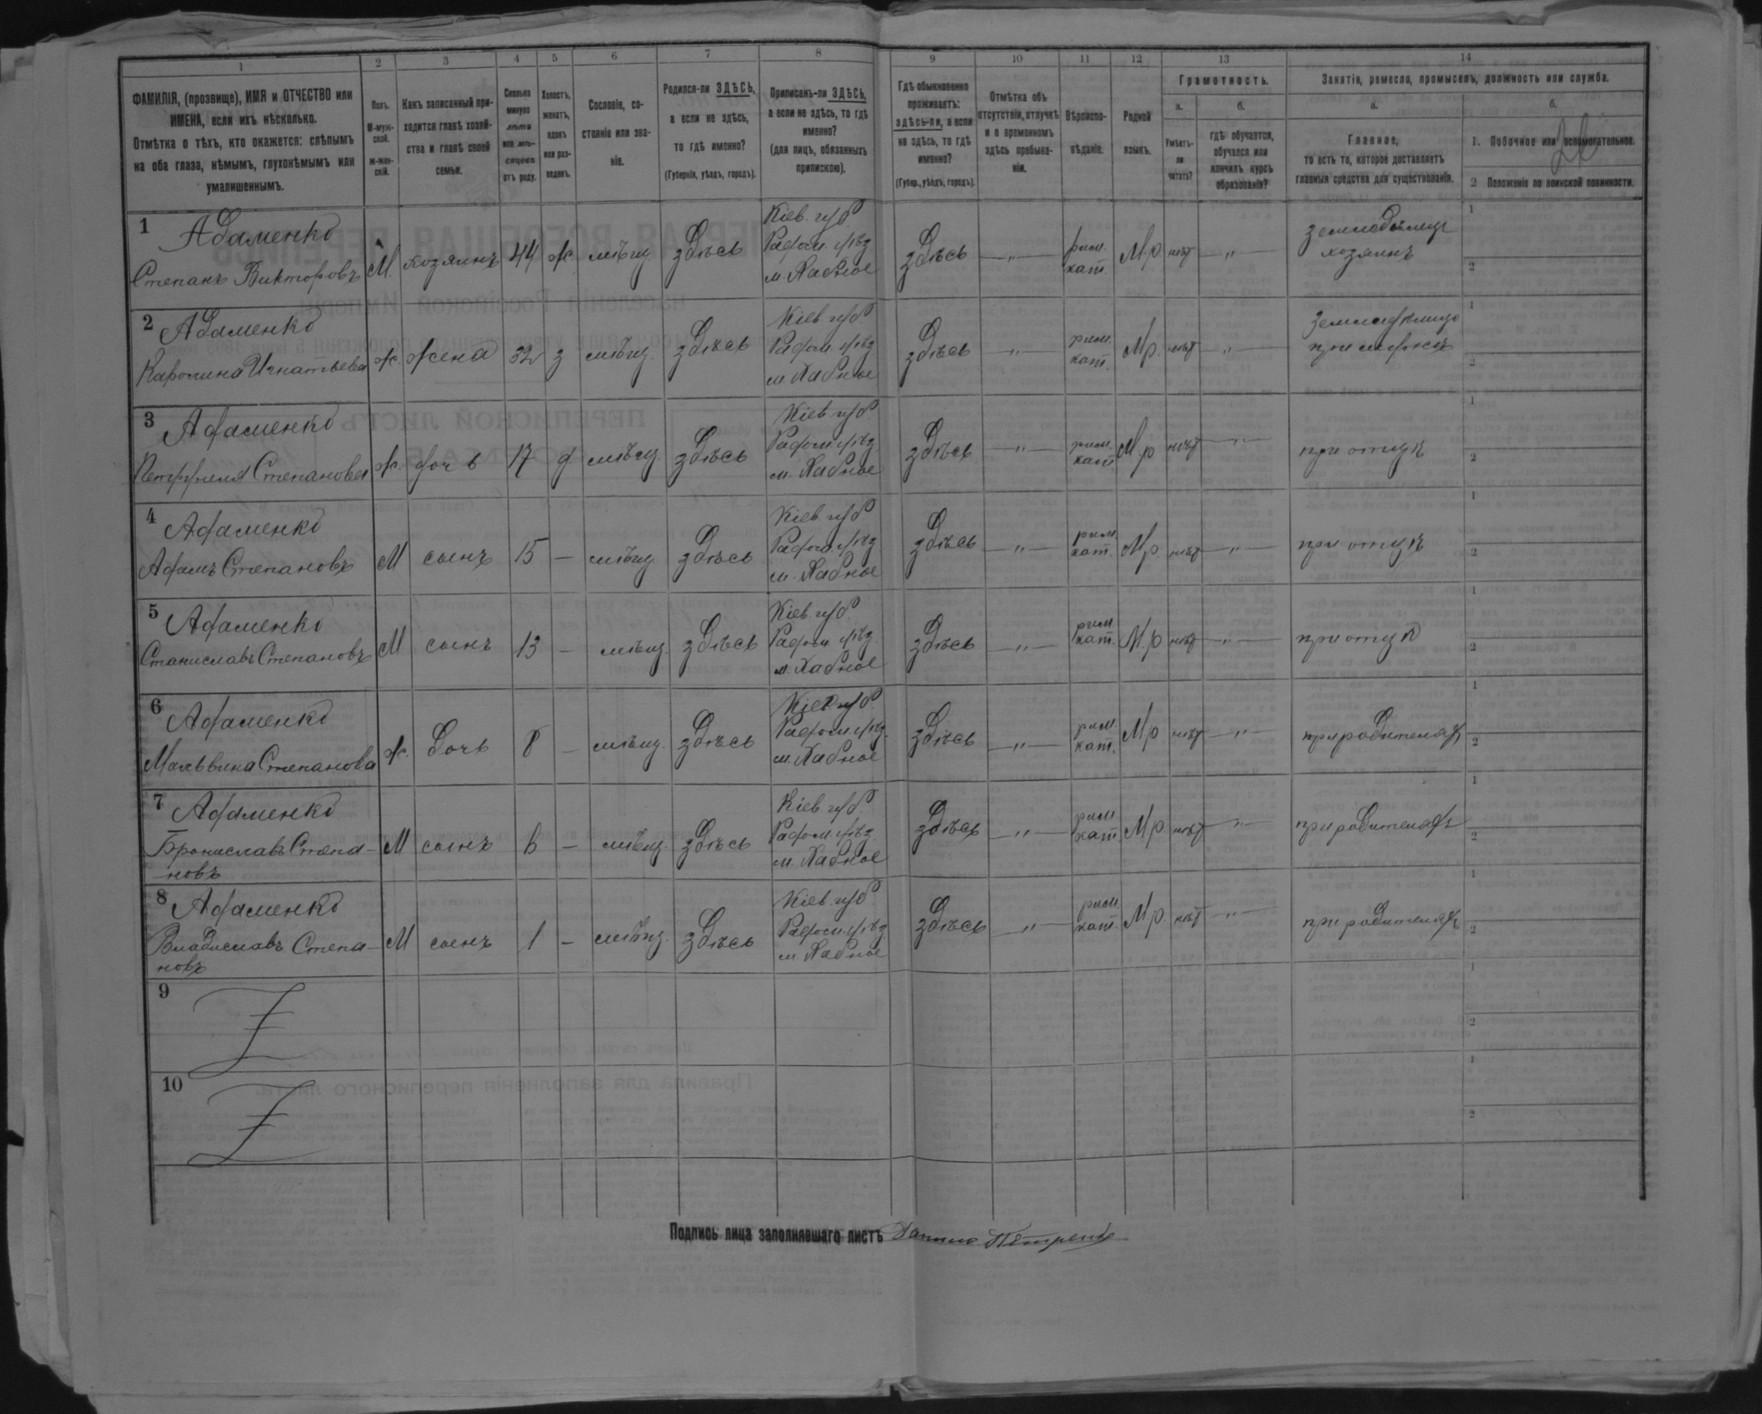 1 2 3 4 5 6 7 8 9 10 11 12 13 14
ФАМИЛІЯ, (прозвище), ИМЯ и ОТЧЕСТВО или
ИМЕНА, если ихъ нѣсколько.
Отмѣтка о тѣхъ, кто окажется: слѣпымъ
на оба глаза, нѣмымъ, глухонѣмымъ или
умалишеннымъ.
Полъ.
М-муж-
ской.
ж-жен-
скій.
Какъ записанный при-
ходится главѣ хозяй-
ства и главѣ своей
семьи.
Сколько
минуло
лѣтъ
или мѣ-
сяцевъ
отъ роду.
Холостъ,
женатъ,
вдовъ
или раз-
веденъ.
Сословіе, со-
стояніе или зва-
ніе.
Родился-ли ЗДѢСЬ,
а если не здѣсь,
то гдѣ именно?
(Губернія, уѣздъ, городъ).
Приписанъ-ли ЗДѢСЬ,
а если не здѣсь, то гдѣ
именно?
(для лицъ, обязанныхъ
припискою).
Гдѣ обыкновенно
проживаетъ:
здѣсь-ли, а если
не здѣсь, то гдѣ
именно?
(Губер., уѣздъ, городъ).
Отмѣтка объ
отсутствіи, отлучкѣ
и о временномъ
здѣсь пребыва-
ніи.
Вѣроиспо-
вѣданіе.
Родной
языкъ.
Грамотность.
а.
Умѣетъ-
ли
читать?
б.
гдѣ обучается,
обучался или
кончилъ курсъ
образованія?
Занятіе, ремесло, промыселъ, должность или служба.
а.
Главное,
то есть то, которое доставляетъ
главныя средства для существованія.
б.
1. Побочное или вспомогательное.
2 Положеніе по воинской повинности.
1 Адаменко
Степанъ Викторовъ М. хозяинъ 44 ж. мѣщ. здѣсь
Кіев. губ
Радом. уѣзд
м. Хабное
здѣсь — „ — рим. кат. М.р нѣт — „ —
земледѣлиц
хозяинъ
1
2
2 Адаменко
Каролина Игнатьева ж. жена 32 з мѣщ. здѣсь
Кіев. губ
Радом. уѣзд
м. Хабное
здѣсь — „ — рим. кат. М.р. нѣт — „ —
при мужѣ
1
2
3 Адаменко
Степанова ж. дочь 17 д мѣщ здѣсь
Кіев. губ
Радом. уѣзд
м. Хабное
здѣсь — „ — рим. кат М.р нѣт — „ —
при отцѣ
1
2
4 Адаменко
Адамъ Степановъ М сынъ 15 — мѣщ. здѣсь
Кіев. губ
Радом. уѣзд
м. Хабное
здѣсь — „ — рим. кат. М.р. нѣт — „ —
при отцѣ
1
2
5 Адаменко
Станиславъ Степановъ М сынъ 13 — мѣщ. здѣсь
Кіев. губ.
Радом. уѣзд
м. Хабное
здѣсь — „ — рим. кат. М.р нѣт — „ —
при отцѣ
1
2
6 Адаменко
Мальвина Степанова ж. дочь 8 — мѣщ. здѣсь
Кіев. губ
Радом. уѣзд.
м. Хабное
здѣсь — „ — рим. кат. М.р нѣт — „ —
при родителях
1
2
7 Адаменко
Брониславъ Степа-
новъ М сынъ 6 — мѣщ. здѣсь
Кіев. губ
Радом. уѣзд
м. Хабное
здѣсь — „ — рим. кат. М.р нѣт — „ —
при родителях
1
2
8 Адаменко
Владиславъ Степа-
новъ М сынъ 1 — мѣщ. здѣсь
Кіев. губ
Радом. уѣзд.
м. Хабное
здѣсь — „ — рим. кат. М.р нѣт — „ —
при родителях
1
2
9
1
2
10
1
2
Подпись лица заполнявшаго листъ